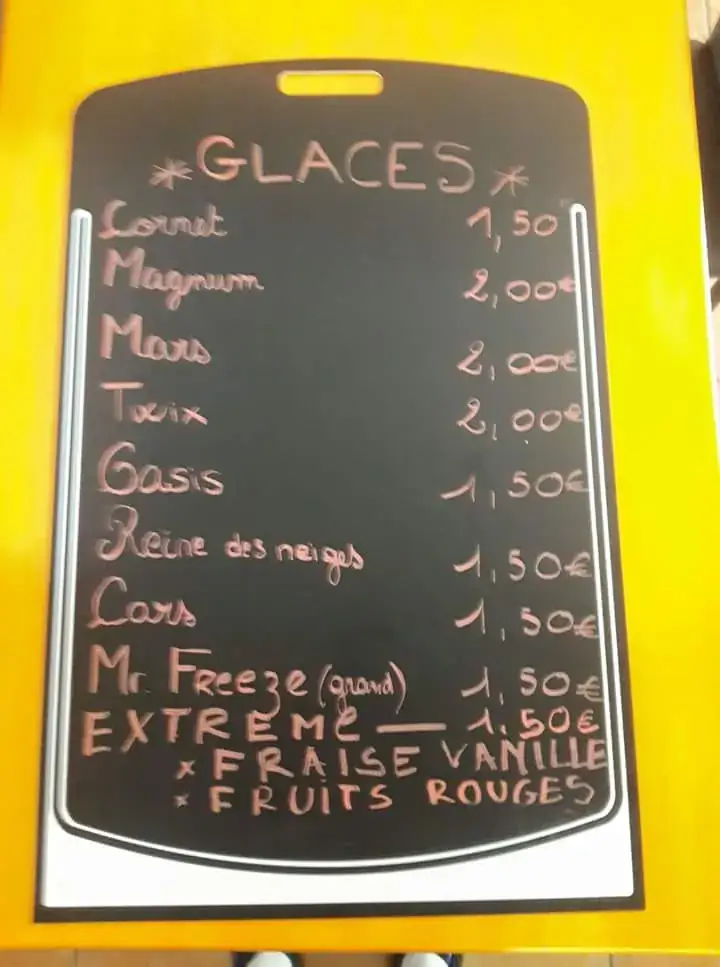 *GLACES*
Cornet 1,50
Magnum 2,00€
Mars 2,00€
Twix 2,00€
Oasis 1,50€
Reine des neiges 1,50€
Cars 1,50€
Mr. Freeze (grand) 1,50€
EXTREME — 1.50€
x FRAISE VANILLE
x FRUITS ROUGES